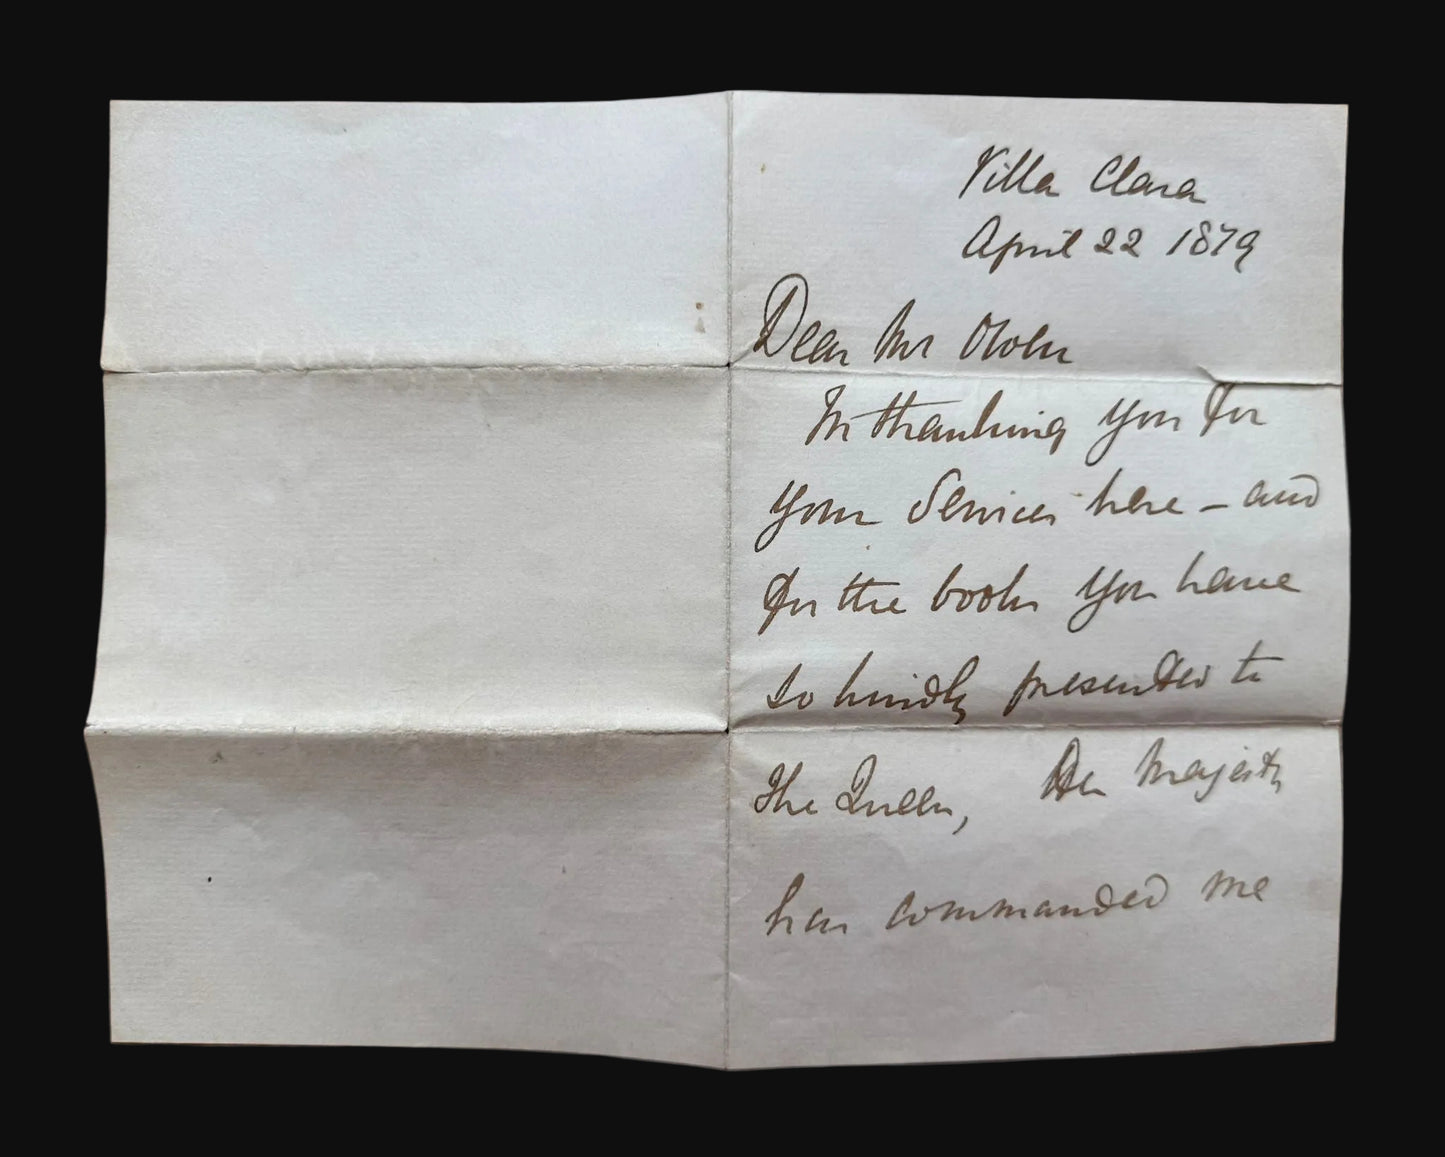 Villa Clara
April 22 1879
Dear Mr
In thanking you for
your Services here – and
for the books you have
so kindly presented to
the Queen, Her Majesty
has commanded me